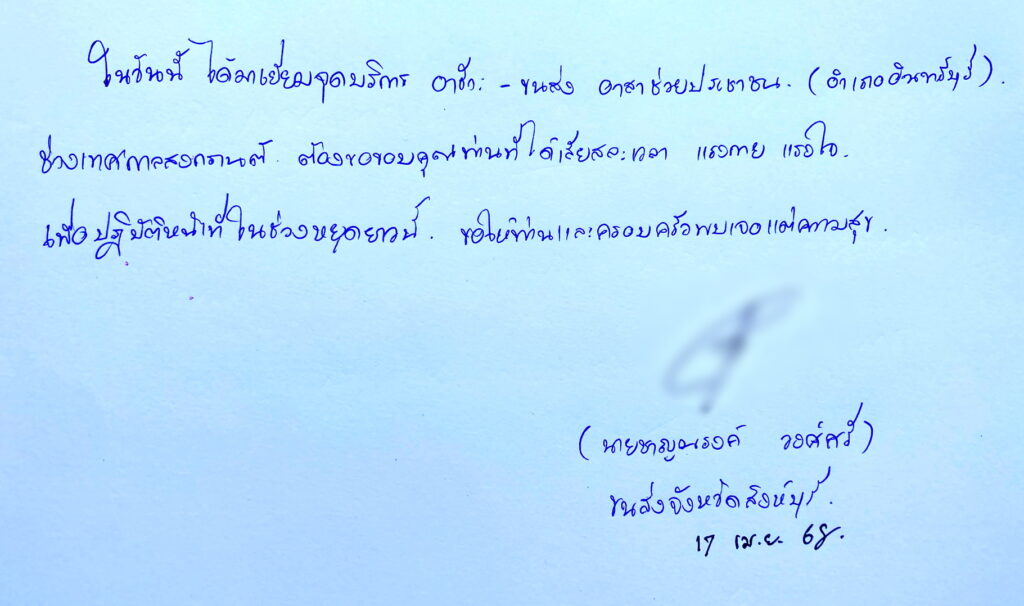 ในวันนี้ ได้มาเยี่ยมจุดบริการ อาชีวะ - ขนส่ง อาสาช่วยประชาชน. (อำเภออินทร์บุรี).
ช่วงเทศกาลสงกรานต์ ต้องขอขอบคุณท่านที่ได้เสียสละเวลา แรงกาย แรงใจ.
เพื่อปฏิบัติหน้าที่ในช่วงหยุดยาวนี้. ขอให้ท่านและครอบครัวพบเจอแต่ความสุข.
(นายชาญณรงค์ วงศ์ศรี)
ขนส่งจังหวัดสิงห์บุรี.
17 เม.ย. 68.